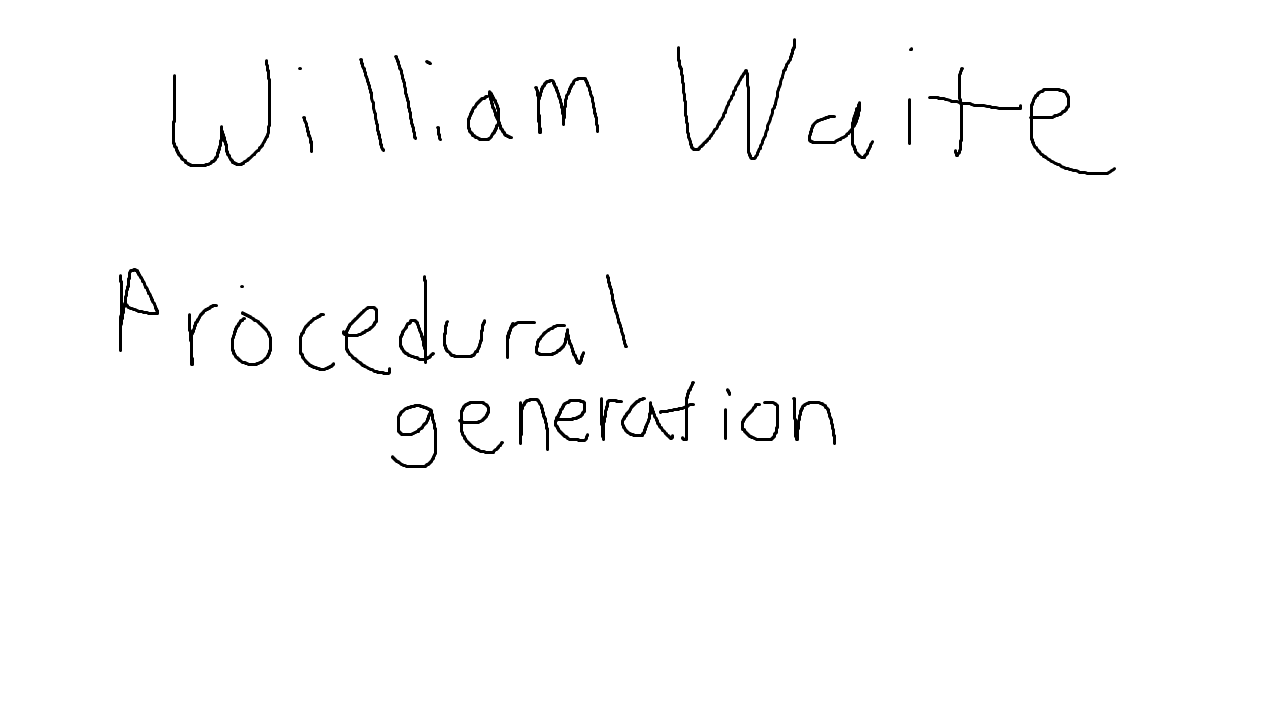 William Waite
Procedural
generation